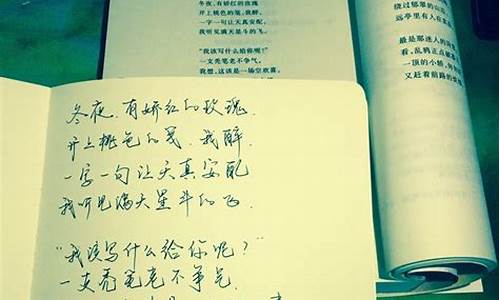 冬夜,有娇红的玫瑰
开上桃色的笺,我醉,
一字一句让天真安配,
我听见满天星斗的飞。
"我该写什么给你呢?"
一支秃笔老不争气,
我想,这该是一场空欢喜。
绕过郁翠的山
远亭里有人在
最是那迷人的
看,乱鸦正点破
一顶的小轿,
又赶着前路的
冬夜,有娇红的玫瑰
开上桃色的笺,我醉,
一字一句让天真安配
我听见满天星斗的飞.
"我该写什么给你呢?"
一支秃笔老不争气.